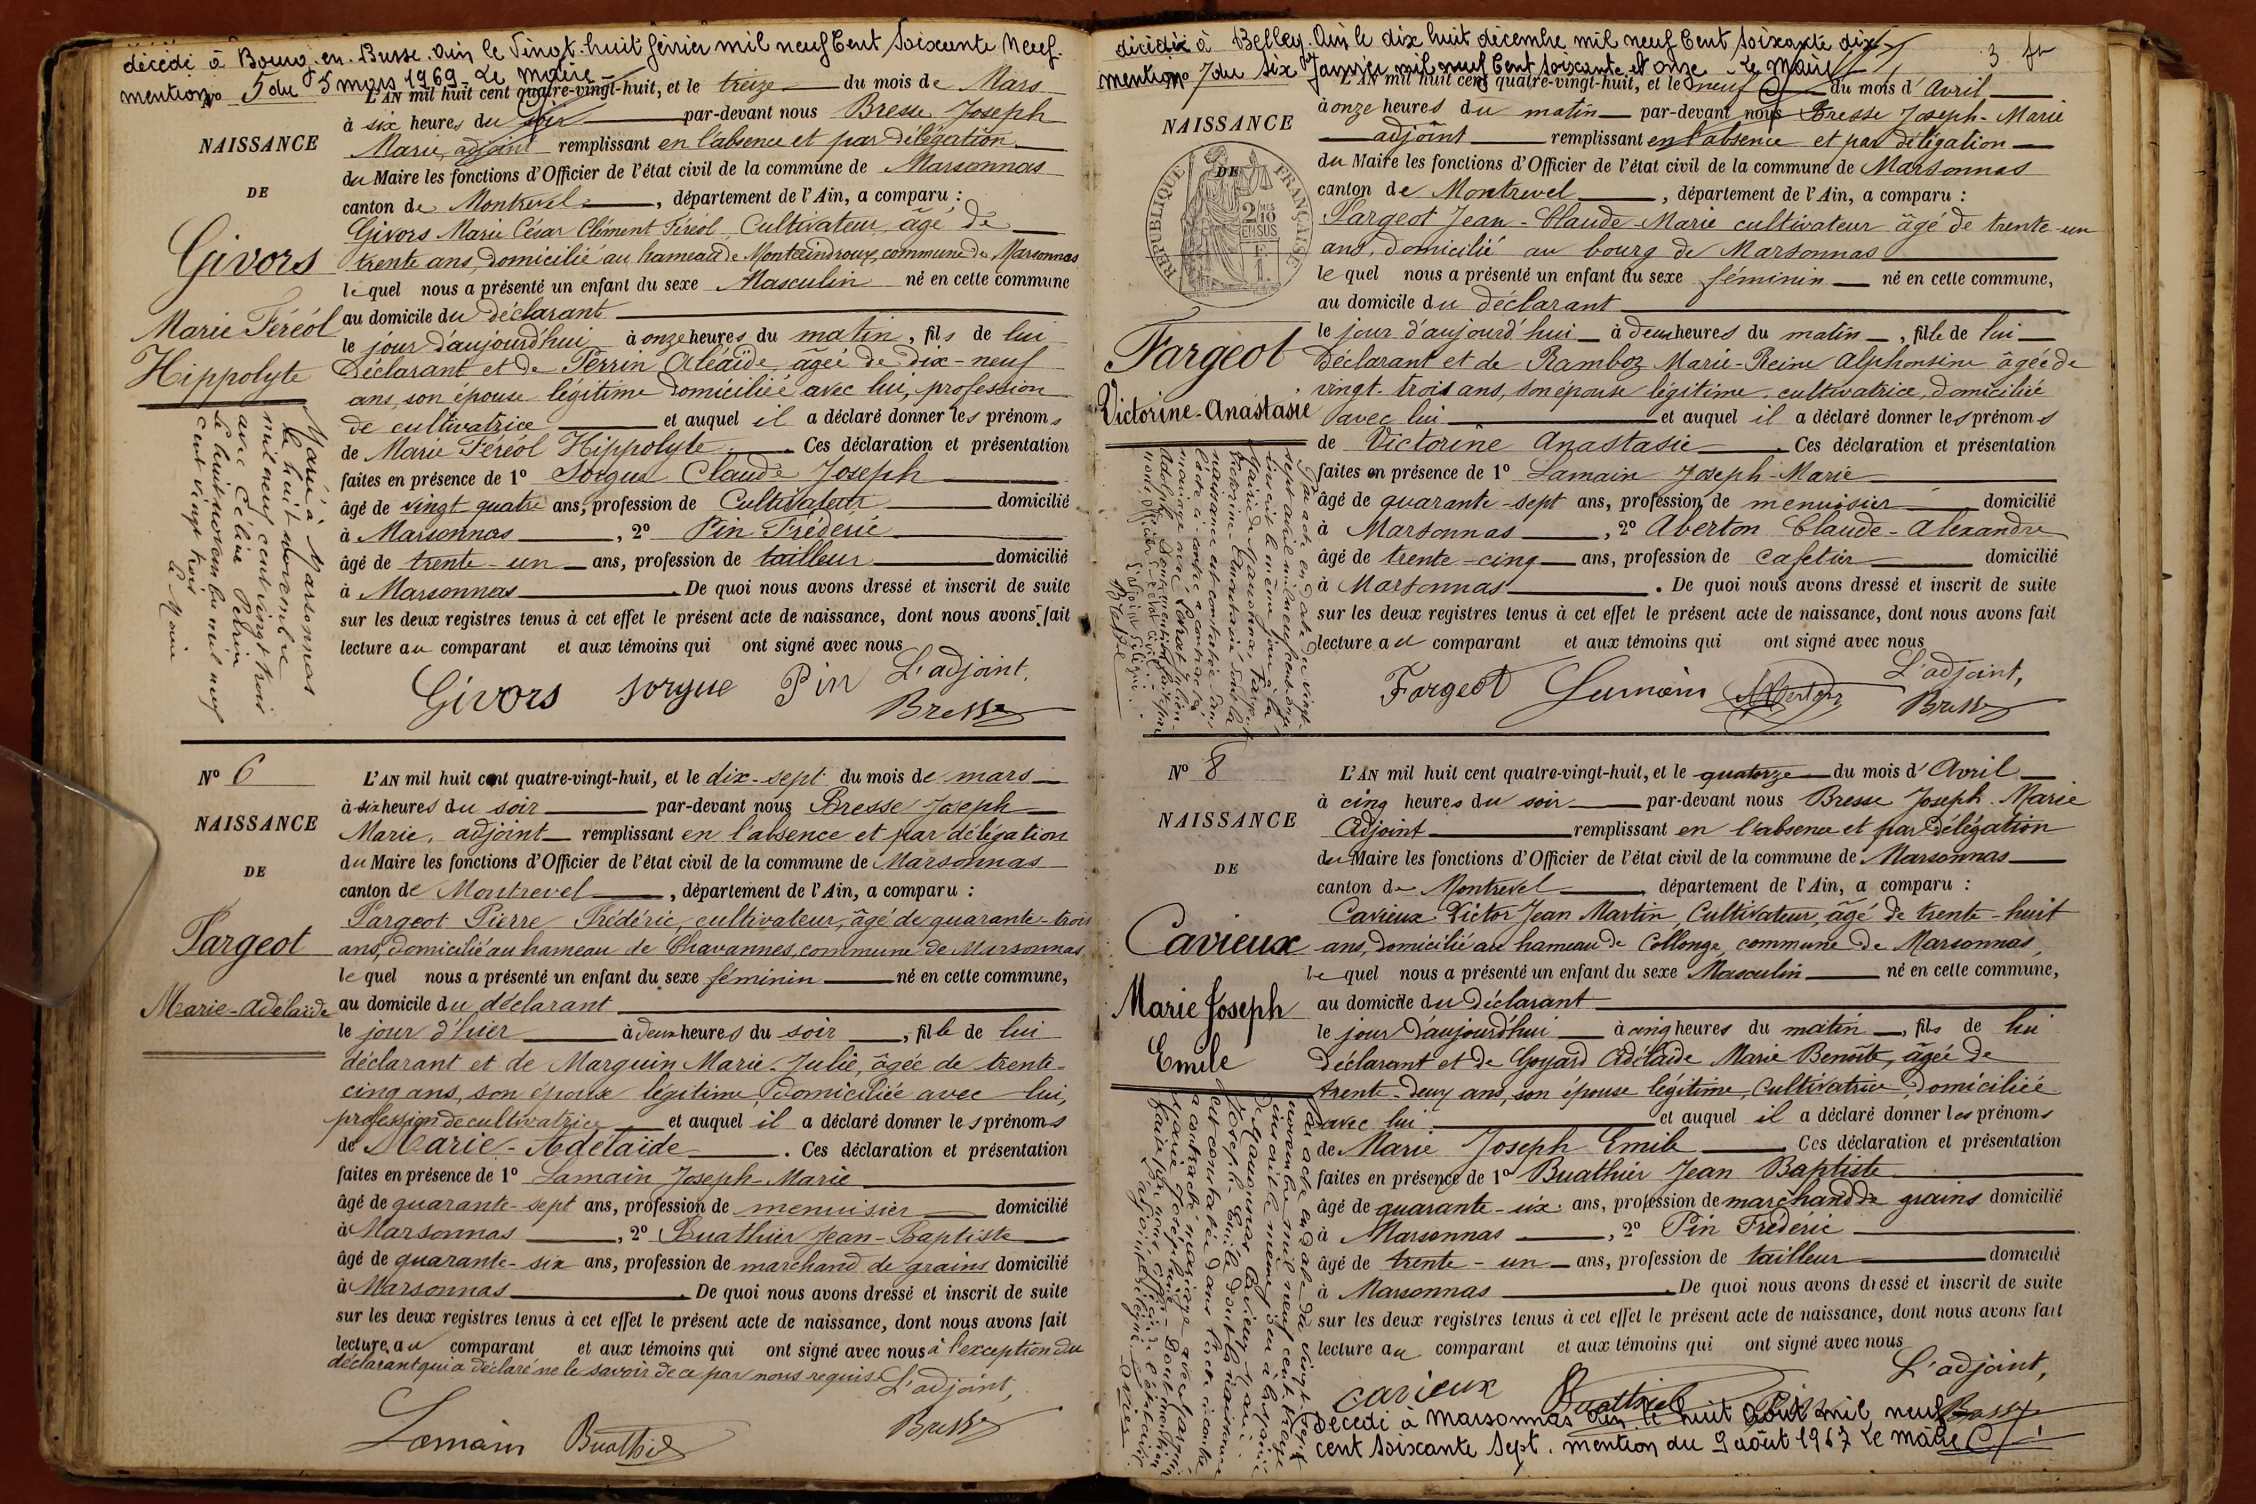 décédé à Bourg-en-Bresse. Ain le Vingt-huit février mil neuf Cent Soixante Neuf.
mention 5 mars 1969 - Le Maire
No 5 du
L'AN mil huit cent quatre-vingt-huit, et le treize du mois de Mars
à six heures du soir par-devant nous Bresse Joseph
NAISSANCE
Marie, adjoint remplissant en l'absence et par délégation
du Maire les fonctions d'Officier de l'état civil de la commune de Marsonnas
DE
canton de Montrevel, département de l'Ain, a comparu :
Givors Marie César Clément Féréol, Cultivateur, âgé de
Givors
trente ans, domicilié au hameau de Montaindroux, commune de Marsonnas
lequel nous a présenté un enfant du sexe Masculin né en cette commune
Marie Féréol
Hippolyte
au domicile du déclarant
le jour d'aujourd'hui à onze heures du matin, fils de lui
Déclarant et de Perrin Aléaïde, âgée de dix-neuf
ans, son épouse légitime domiciliée avec lui, profession
de cultivatrice et auquel il a déclaré donner les prénoms
de Marie Féréol Hippolyte. Ces déclaration et présentation
faites en présence de 1º Sorgue Claude Joseph
âgé de vingt quatre ans, profession de Cultivateur domicilié
à Marsonnas, 2º Pin Fréderic
âgé de trente-un ans, profession de tailleur domicilié
à Marsonnas. De quoi nous avons dressé et inscrit de suite
sur les deux registres tenus à cet effet le présent acte de naissance, dont nous avons fait
lecture au comparant et aux témoins qui ont signé avec nous
L'adjoint,
Givors Sorgue Pin
Bresse
Marié à Marsonnas
le huit novembre
mil neuf cent vingt trois
avec Céline Perrin
Le huit novembre mil neuf
cent vingt trois
Le Maire
Nº 6
L'AN mil huit cent quatre-vingt-huit, et le dix-sept du mois de mars
à six heures du soir par-devant nous Bresse Joseph
NAISSANCE
Marie, adjoint remplissant en l'absence et par délégation
du Maire les fonctions d'Officier de l'état civil de la commune de Marsonnas
DE
canton de Montrevel, département de l'Ain, a comparu :
Fargeot Pierre Frédéric, cultivateur, âgé de quarante-trois
Fargeot
ans, domicilié au hameau de Chavannes, commune de Marsonnas
lequel nous a présenté un enfant du sexe féminin né en cette commune,
Marie-Adélaïde
au domicile du déclarant
le jour d'hier à deux heures du soir, fille de lui
déclarant et de Marguin Marie-Julie, âgée de trente-
cinq ans, son épouse légitime, domiciliée avec lui,
profession de cultivatrice et auquel il a déclaré donner les prénoms
de Marie-Adélaïde. Ces déclaration et présentation
faites en présence de 1º Lamain Joseph-Marie
âgé de quarante-sept ans, profession de menuisier domicilié
à Marsonnas, 2º Buathier Jean-Baptiste
âgé de quarante-six ans, profession de marchand de grains domicilié
à Marsonnas. De quoi nous avons dressé et inscrit de suite
sur les deux registres tenus à cet effet le présent acte de naissance, dont nous avons fait
lecture au comparant et aux témoins qui ont signé avec nous à l'exception du
déclarant qui a déclaré ne le savoir de ce par nous requis. L'adjoint,
Lamain Buathier
Bresse
décédée à Belley. Ain le dix huit décembre mil neuf Cent soixante dix
3
mention No 7 du Six Janvier mil neuf Cent soixante et onze. Le Maire
L'AN mil huit cent quatre-vingt-huit, et le neuf du mois d'Avril
à onze heures du matin par-devant nous Bresse Joseph-Marie
NAISSANCE
adjoint remplissant en l'absence et par délégation
du Maire les fonctions d'Officier de l'état civil de la commune de Marsonnas
DE
RÉPUBLIQUE FRANÇAISE
canton de Montrevel, département de l'Ain, a comparu :
Fargeot Jean-Claude-Marie cultivateur âgé de trente-un
ans, domicilié au bourg de Marsonnas
lequel nous a présenté un enfant du sexe féminin né en cette commune,
au domicile du déclarant
Fargeot
le jour d'aujourd'hui à deux heures du matin, fille de lui
Déclarant et de Ramboz Marie-Reine Alphonsine âgée de
vingt-trois ans, son épouse légitime, cultivatrice, domiciliée
Victorine-Anastasie
avec lui et auquel il a déclaré donner les prénoms
de Victorine Anastasie. Ces déclaration et présentation
faites en présence de 1º Lamain Joseph-Marie
âgé de quarante-sept ans, profession de menuisier domicilié
à Marsonnas, 2º Averton Claude-Alexandre
âgé de trente-cinq ans, profession de cafetier domicilié
à Marsonnas. De quoi nous avons dressé et inscrit de suite
sur les deux registres tenus à cet effet le présent acte de naissance, dont nous avons fait
lecture au comparant et aux témoins qui ont signé avec nous
L'adjoint,
Fargeot Lamain Averton
Bresse
Par acte en date du vingt-
sept avril mil neuf cent onze
inscrit le même jour à la
mairie de Marsonnas, Fargeot
Victorine-Anastasie dont la
naissance est constatée dans
l'acte ci-contre a contracté
mariage avec
Nº 8
L'AN mil huit cent quatre-vingt-huit, et le quatorze du mois d'Avril
à cinq heures du soir par-devant nous Bresse Joseph-Marie
NAISSANCE
Adjoint remplissant en l'absence et par délégation
du Maire les fonctions d'Officier de l'état civil de la commune de Marsonnas
DE
canton de Montrevel département de l'Ain, a comparu :
Cavieux Victor Jean Martin, Cultivateur, âgé de trente-huit
Cavieux
ans, domicilié au hameau de Collonge, commune de Marsonnas,
lequel nous a présenté un enfant du sexe Masculin né en cette commune,
Marie Joseph
Emile
au domicile du Déclarant
le jour d'aujourd'hui à cinq heures du matin, fils de lui
Déclarant et de Goyard Adélaïde Marie Benoîte, âgée de
trente-deux ans, son épouse légitime, Cultivatrice, domiciliée
avec lui et auquel il a déclaré donner les prénoms
de Marie Joseph Emile Ces déclaration et présentation
faites en présence de 1º Buathier Jean Baptiste
âgé de quarante-six ans, profession de marchand de grains domicilié
à Marsonnas, 2º Pin Frédéric
âgé de trente-un ans, profession de tailleur domicilié
à Marsonnas. De quoi nous avons dressé et inscrit de suite
sur les deux registres tenus à cet effet le présent acte de naissance, dont nous avons fait
lecture au comparant et aux témoins qui ont signé avec nous
L'adjoint,
cavieux Buathier Pin Bresse
Décédé à Marsonnas Ain le huit Août mil neuf
cent soixante sept. mention du 9 août 1967 Le Maire
Par acte en date du vingt-sept
novembre mil neuf cent treize
inscrit le même jour à la mairie
de Marsonnas Cavieux Marie
Joseph Emile dont la naissance
est constatée dans l'acte ci-contre
a contracté mariage avec